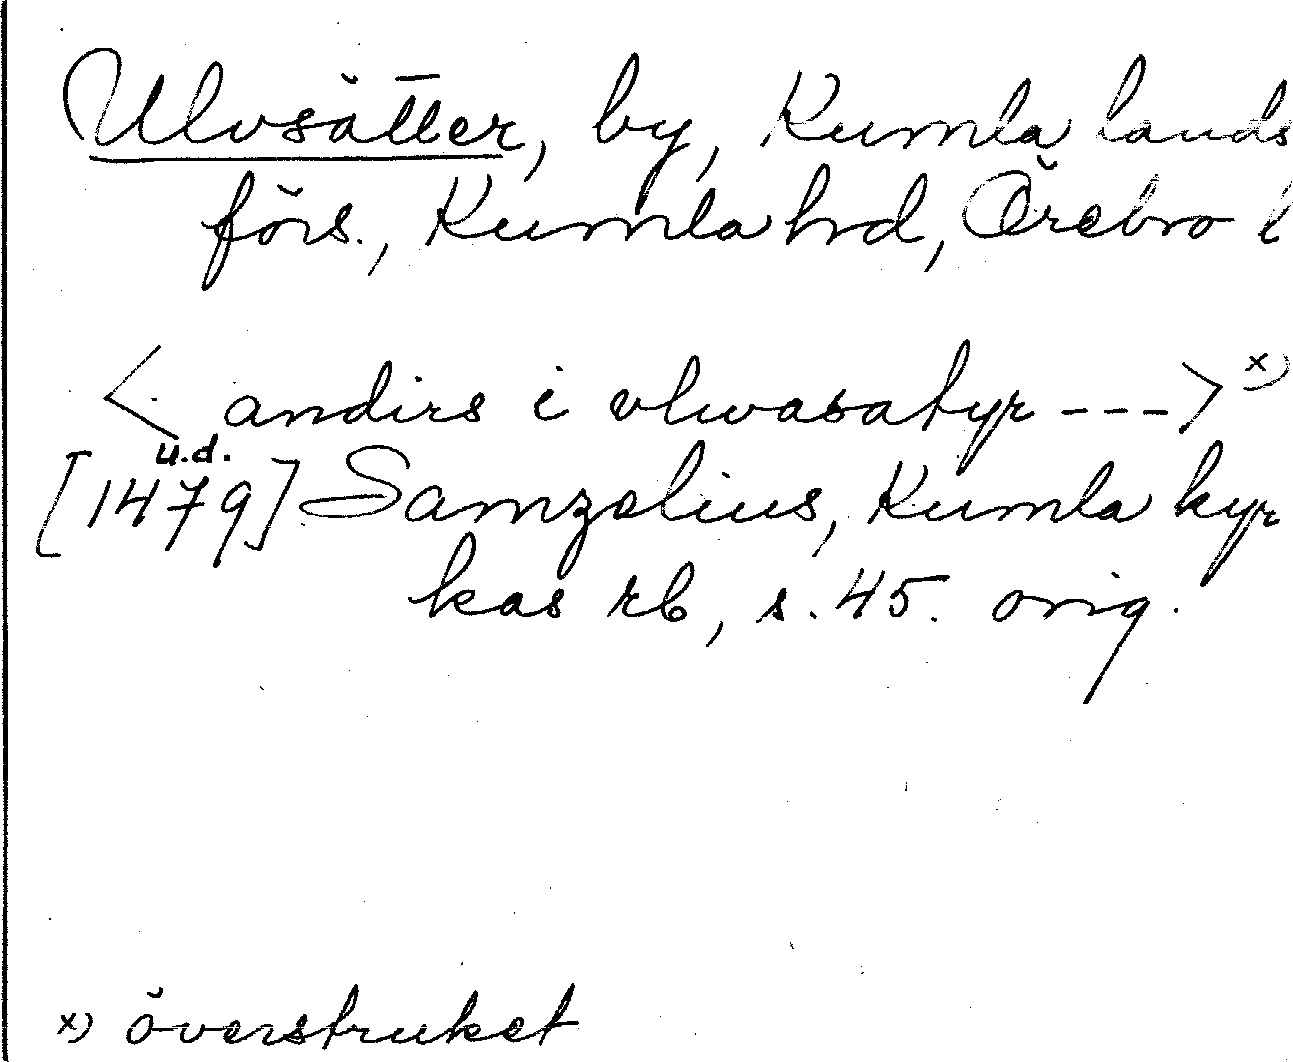 Ulvsätter, by, Kumla lands
förs., Kumla hrd, Örebro l
< andirs i vlwasatyr ---> x)
u.d.
[1479] Samzelius, Kumla kyr
kas rb, s. 45. orig.
x) överstruket